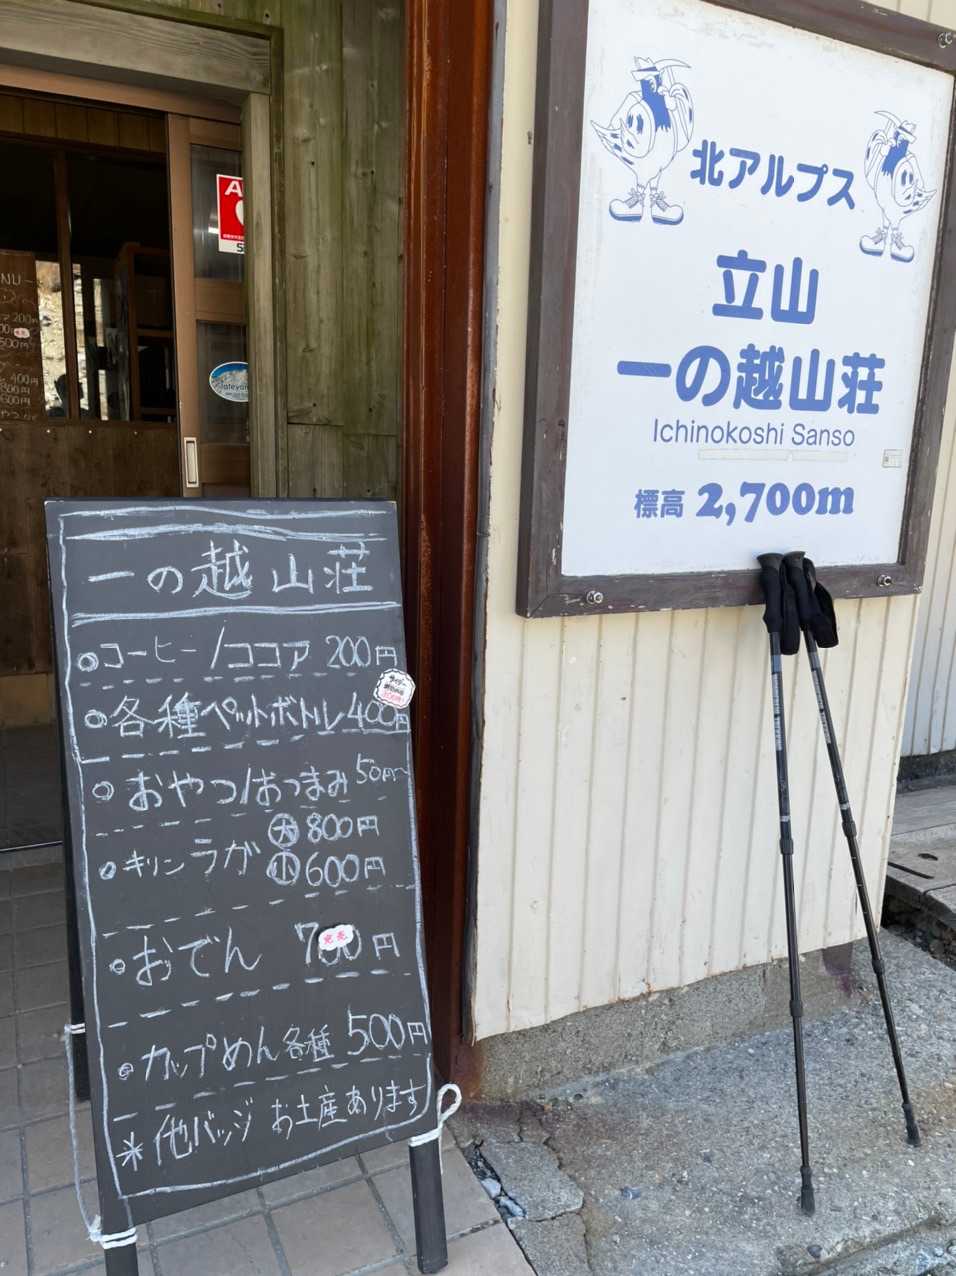 北アルプス
立山
一の越山荘
Ichinokoshi Sanso
標高 2,700m
一の越山荘
コーヒー/ココア 200円
各種ペットボトル 400円
おやつ/おつまみ 50円〜
キリンラガー 大 800円
小 600円
おでん 700円
完売
カップめん各種 500円
＊他バッジ お土産あります
NU
200円
500円
400円
800円
600円